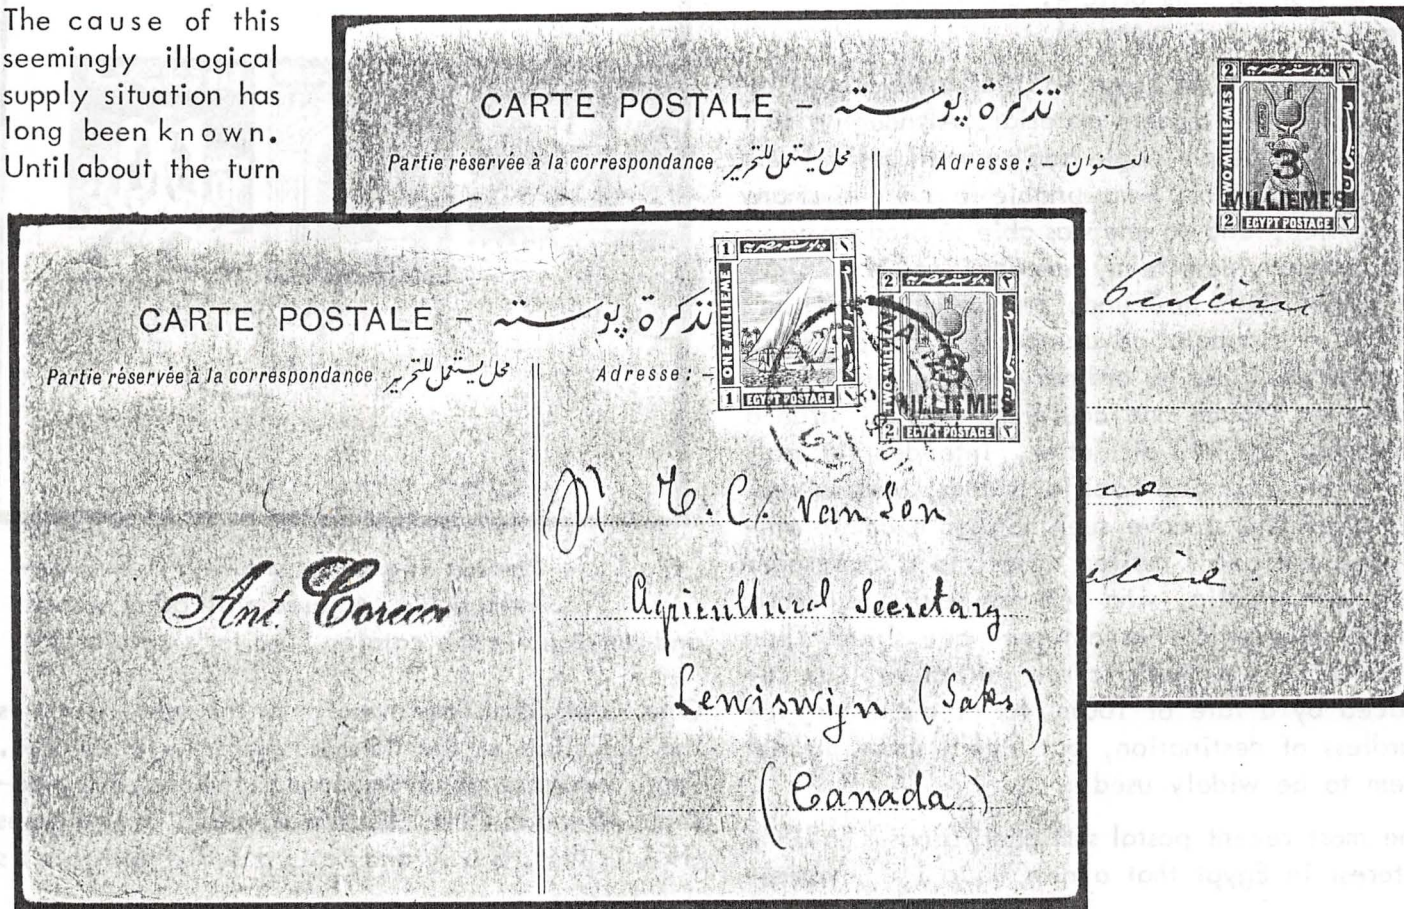 The cause of this
seemingly illogical
supply situation has
long been known.
Until about the turn
CARTE POSTALE – تذكرة پوسته
Partie réservée à la correspondance محل يستعمل للتحرير
Adresse: – العنوان
2 ٢
TWO MILLIEMES
3
MILLIEMES
2 EGYPT POSTAGE ٢
CARTE POSTALE – تذكرة پوسته
Partie réservée à la correspondance محل يستعمل للتحرير
Adresse: –
1 ١
ONE MILLIEME
1 EGYPT POSTAGE ١
2 ٢
TWO MILLIEMES
3
MILLIEMES
2 EGYPT POSTAGE ٢
C. Van Son
Agricultural Secretary
Lewiswijn (Saks)
(Canada)
Ant.